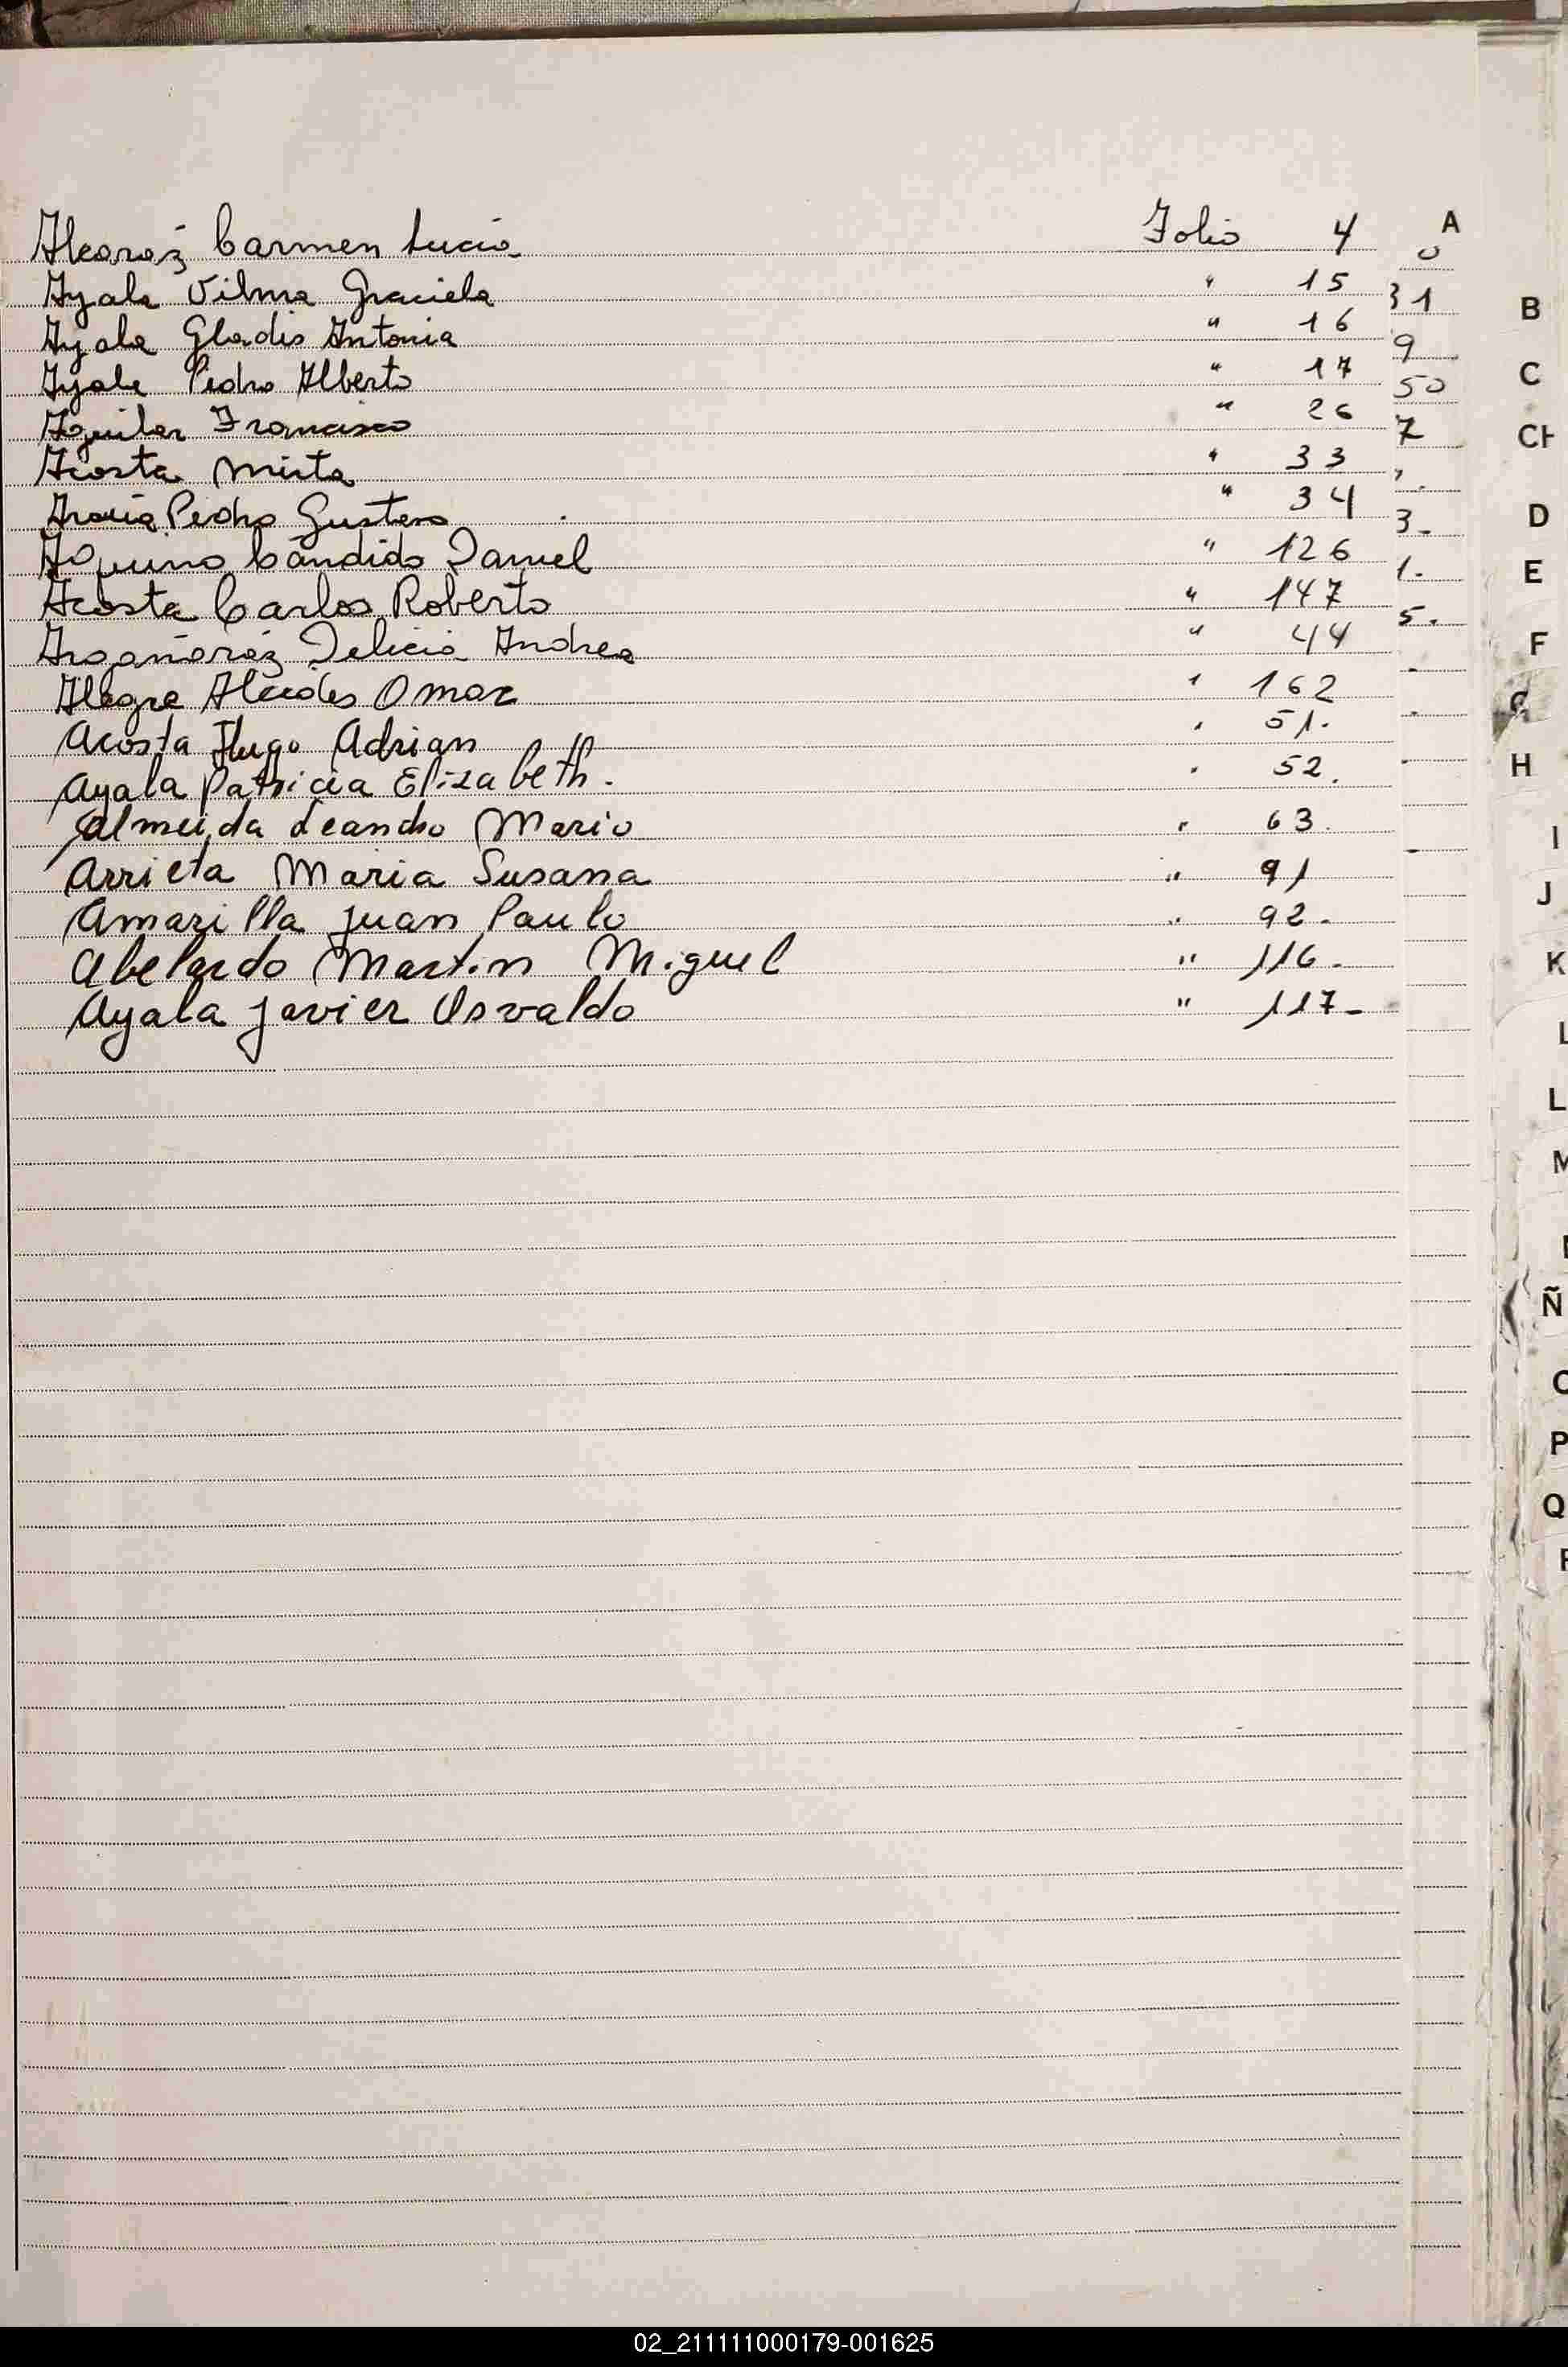 A
Alcaráz Carmen Lucia Folio 4
Ayala Vilma Graciela " 15
Ayala Gladis Antonia " 16
Ayala Pedro Alberto " 17
Aguilar Francisco " 26
Acosta Mirta " 33
Pedro Gustavo " 34
Aquino Cándido Daniel " 126
Acosta Carlos Roberto " 147
Argañaráz Delicia Andrea " 44
Alegre Alcides Omar " 162
Acosta Hugo Adrian " 51.
Ayala Patricia Elizabeth. " 52.
Almeida Leandro Mario " 63.
Arrieta Maria Susana " 91
Amarilla Juan Paulo " 92.
Abelardo Martin Miguel " 116.
Ayala Javier Osvaldo " 117-
31
9
50
7
3.
1.
5.
B
C
CH
D
E
F
G
H
I
J
K
L
L
M
Ñ
O
P
Q
02_211111000179-001625